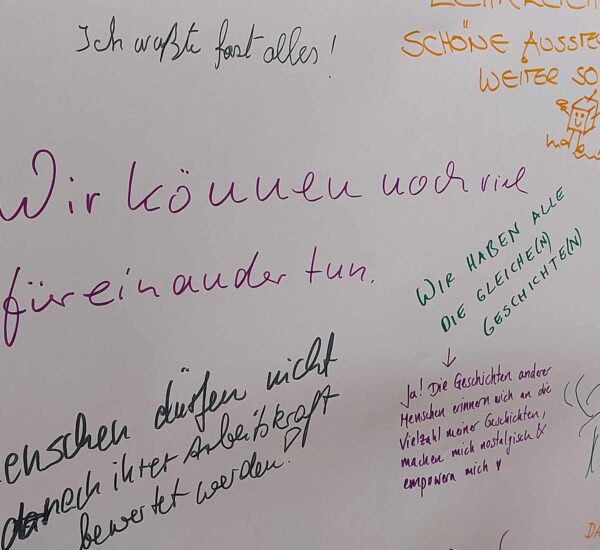 Ich wußte fast alles!
LEHRREICH
SCHÖNE AUSSTE
WEITER SO
Wir können noch viel
für einander tun.
WIR HABEN ALLE
DIE GLEICHE(N)
GESCHICHTE(N)
↓
Ja! Die Geschichten anderer
Menschen erinnern mich an die
Vielzahl meiner Geschichten,
machen mich nostalgisch &
empowern mich ♥
enschen dürfen nicht
danach ihrer Arbeitskraft
bewertet werden!
DA